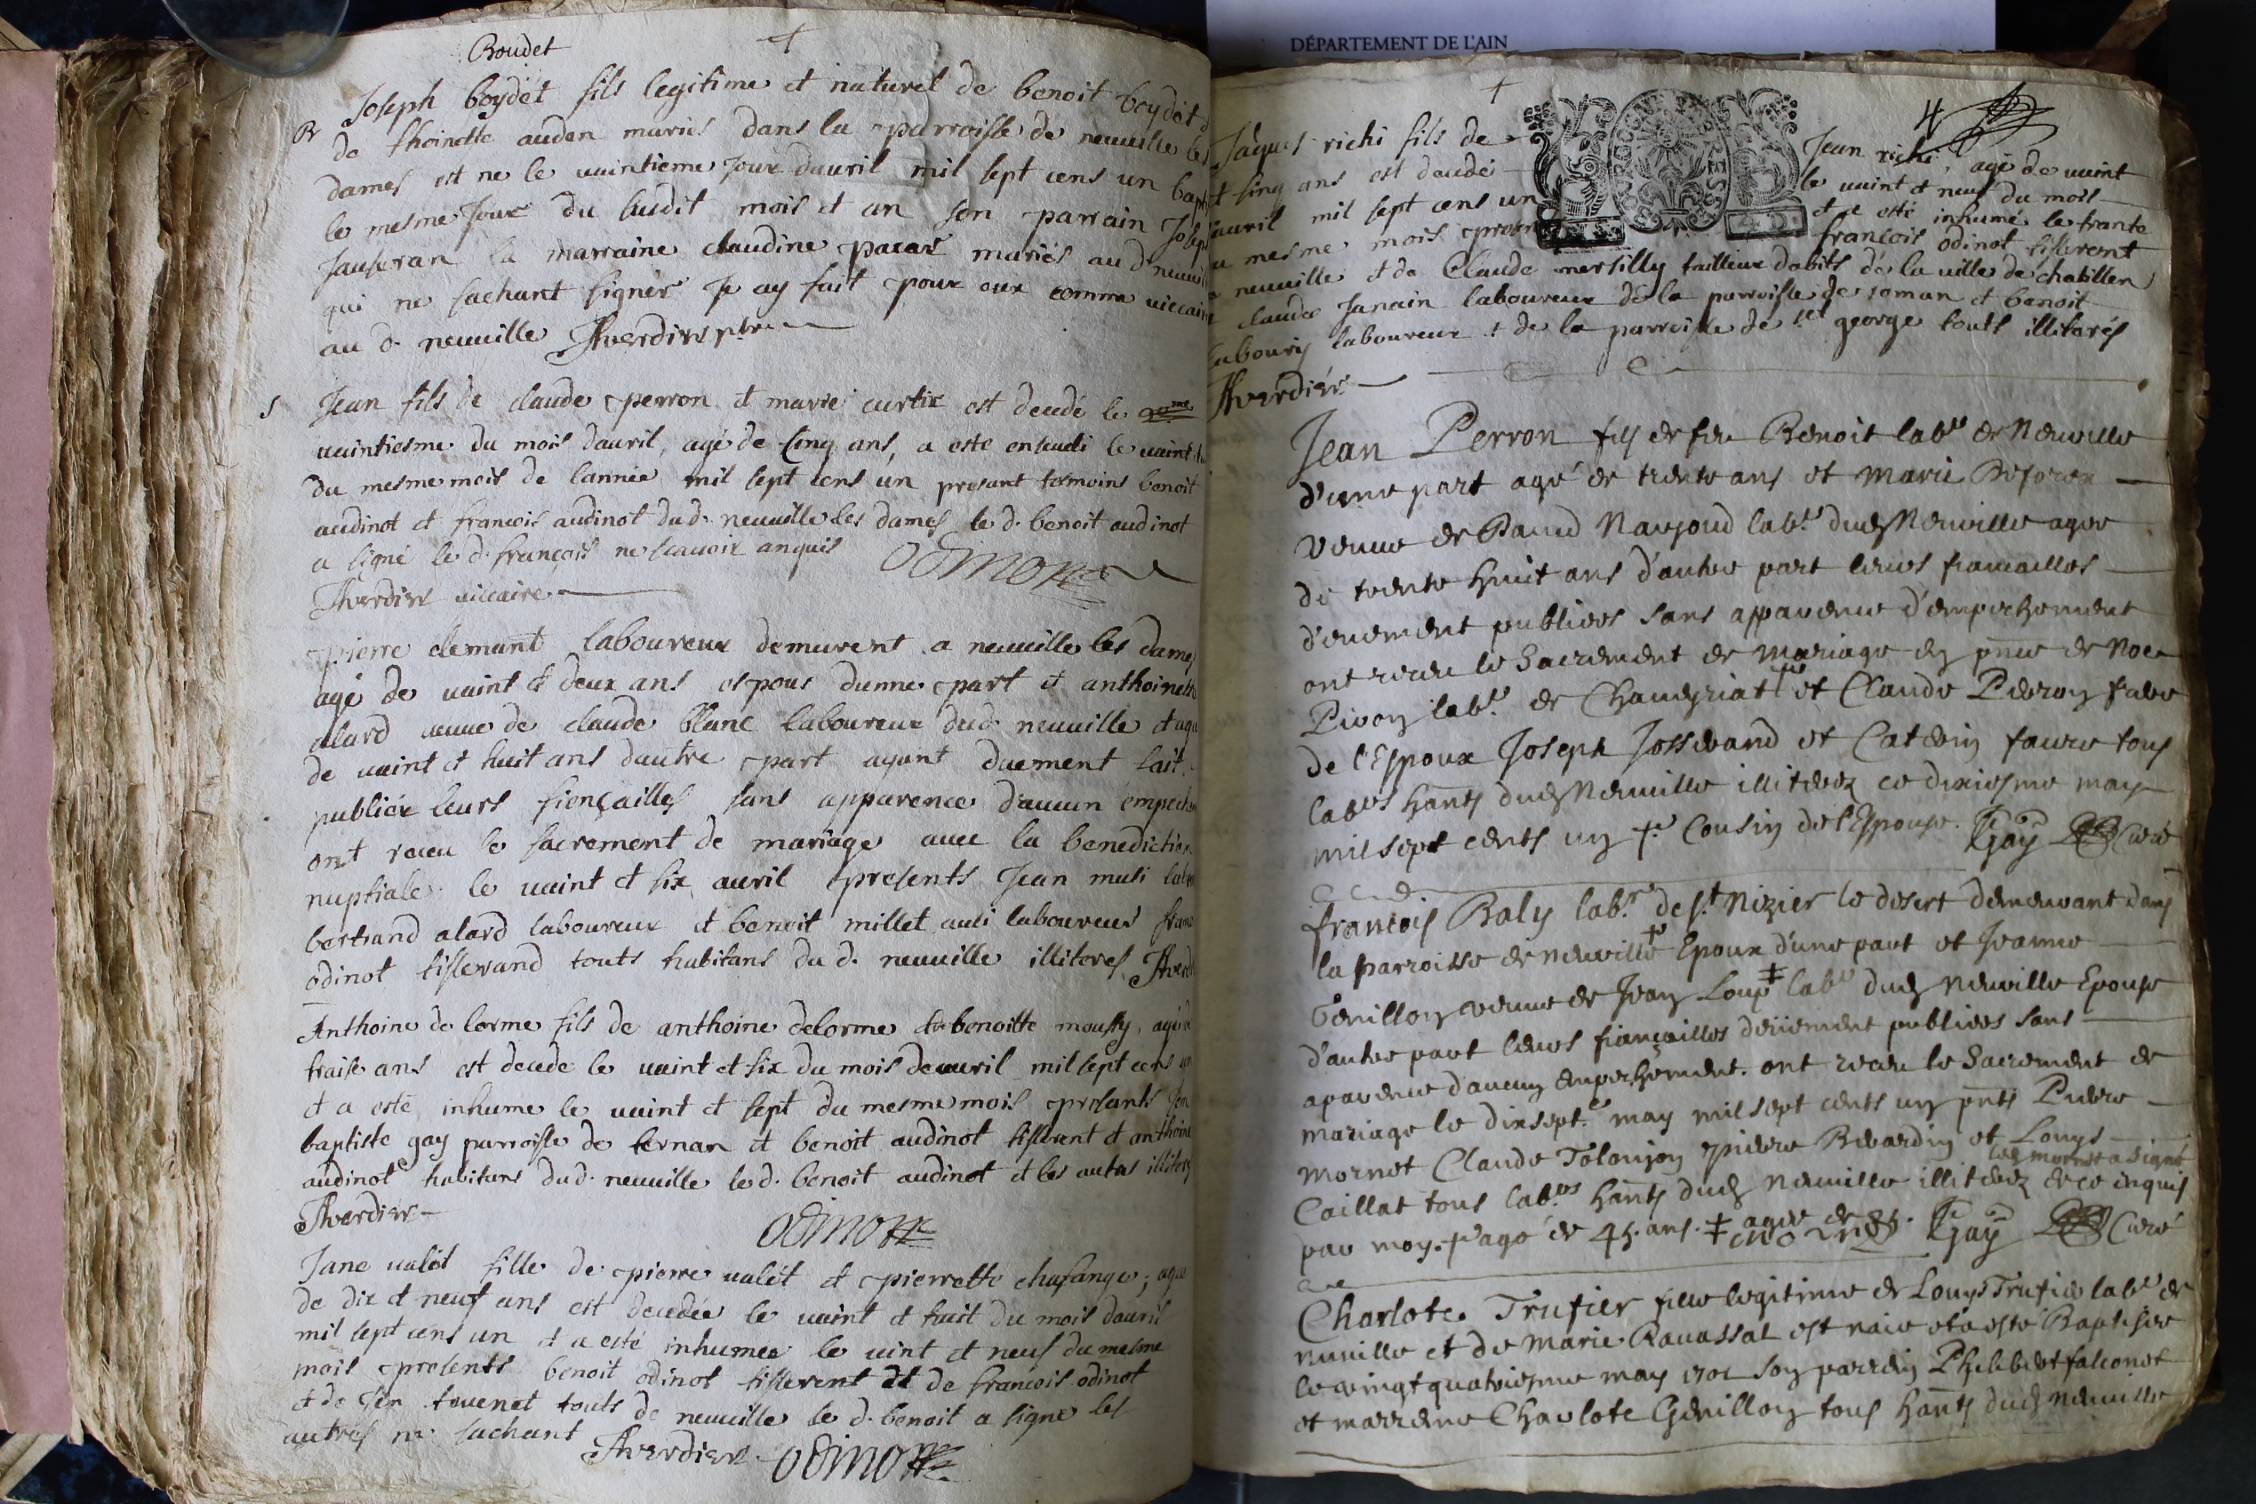 Boudet
Joseph boydet fils legitime et naturel de benoit boydet
B de thoinette auden mariés dans la parroisse de neuville les
dames est ne le vaintieme jour dauril mil sept cens un bapt
le mesme jour du susdit mois et an son parrain Joseph
Janseran la marraine claudine pacar mariés au d neuville
qui ne sachant signér Je ay fait pour eux comme viccaire
au d. neuville Averdier pbre
S Jean fils de claude perron et marie curtil est decedé le
vaintiesme du mois dauril, agé de cinq ans, a este enseueli le vaint
du mesme mois de lannée mil sept cens un presant tesmoins benoit
audinot et francois audinot du d. neuuille les dames le d. benoit audinot
a signé le d. françois ne scavoir anquis odinot
Averdier viccaire
pierre clemant laboureur demurent a neuuille les dames
agé de vaint et deux ans espous dunne part et anthoinette
alard veuue de claude blanc laboureur dud. neuuille et agee
de vaint et huit ans dautre part ayant duement fait
publiér leurs fiençailles sans apparence daucun empeche
ont receu le sacrement de mariage avec la benediction
nuptiale le vaint et six auril presents Jean musi labou
bertrand alard laboureur et benoit millet auci laboureur franc
odinot tisserand touts habitans du d. neuuille illiteres Averd
Anthoine de lorme fils de anthoine delorme et benoitte moussy, agé de
traise ans est decede le vaint et six du mois de auril mil sept cens un
et a esté inhume le vaint et sept du mesme mois presants Jen
baptiste gay parroisse de sernan et benoit audinot tisserent et anthoine
audinot habitans dud. neuuille le d. benoit audinot et les autres illiteres
Averdier odinot
Jane valét fille de pierre valét et pierrette chafange, agée
de dix et neuf ans est decedée le vaint et huit du mois dauril
mil sept cens un et a esté inhumee le vint et neuf du mesme
mois presents benoit odinot tisserent et de francois odinot
et de Jen tevenet touts de neuuille le d. benoit a signé les
autres ne sachant Averdier odinot
DÉPARTEMENT DE L'AIN
4
Jaques richi fils de Jean richi, agé de vaint
et sinq ans est decedé le vaint et neuf du mois
dauril mil sept cens un et a esté inhumé le trante
du mesme mois presen francois odinot tisserent
a neuuille et de Claude mersilly tailleur dabits de la ville de chatillon
claude Janain laboureur de la parroisse de roman et benoit
laboureur de la parroisse de st george touts illiterés
Averdiér
Jean Perron fils de feu Benoit labr de Neuville
d'une part agé de trente ans et Marie Deforex
veuue de Daniel Naujoud labr dud Neuville agee
de trente huit ans d'autre part leurs fiancailles
deuement publiees sans apparence d'empechement
ont receu le Sacrement de mariage en pnce de Noel
Pivon labr de Chaueyriat et Claude Perron frere
de l'Espoux Joseph Josserand et Caterin faure tous
labrs hants dud Neuville illiterez ce dixiesme may
mil sept cents un + cousin de l'Espouse. Gay Curé
francois Baly labr de st Nizier le desert demeurant dans
la parroisse de neuville + Epoux d'une part et Jeanne
Genillon veuue de Jean Loup ‡ labr dud Neuville Epouse
d'autre part leurs fiançailles deüement publiees sans
aparence d'aucun empechement. ont receu le Sacrement de
mariage le dixsept.e may mil sept cents un pnts Pierre
Mornet Claude Tolonjon pierre Reuardin et Louys
led mornet a signé
Caillat tous labrs hants dud Neuville illiterez de ce enquis
par moy. + agé de 45. ans. ‡ agee de Gay Curé
Charlote Trufier fille legitime de Louys Trufier labr de
nuville et de Marie Rauassat est naie et a esté Baptisee
le vingt quatriesme may 1701 son parrein Philibert falconet
et marrene Charlote Genillon tous hants dud Neuville